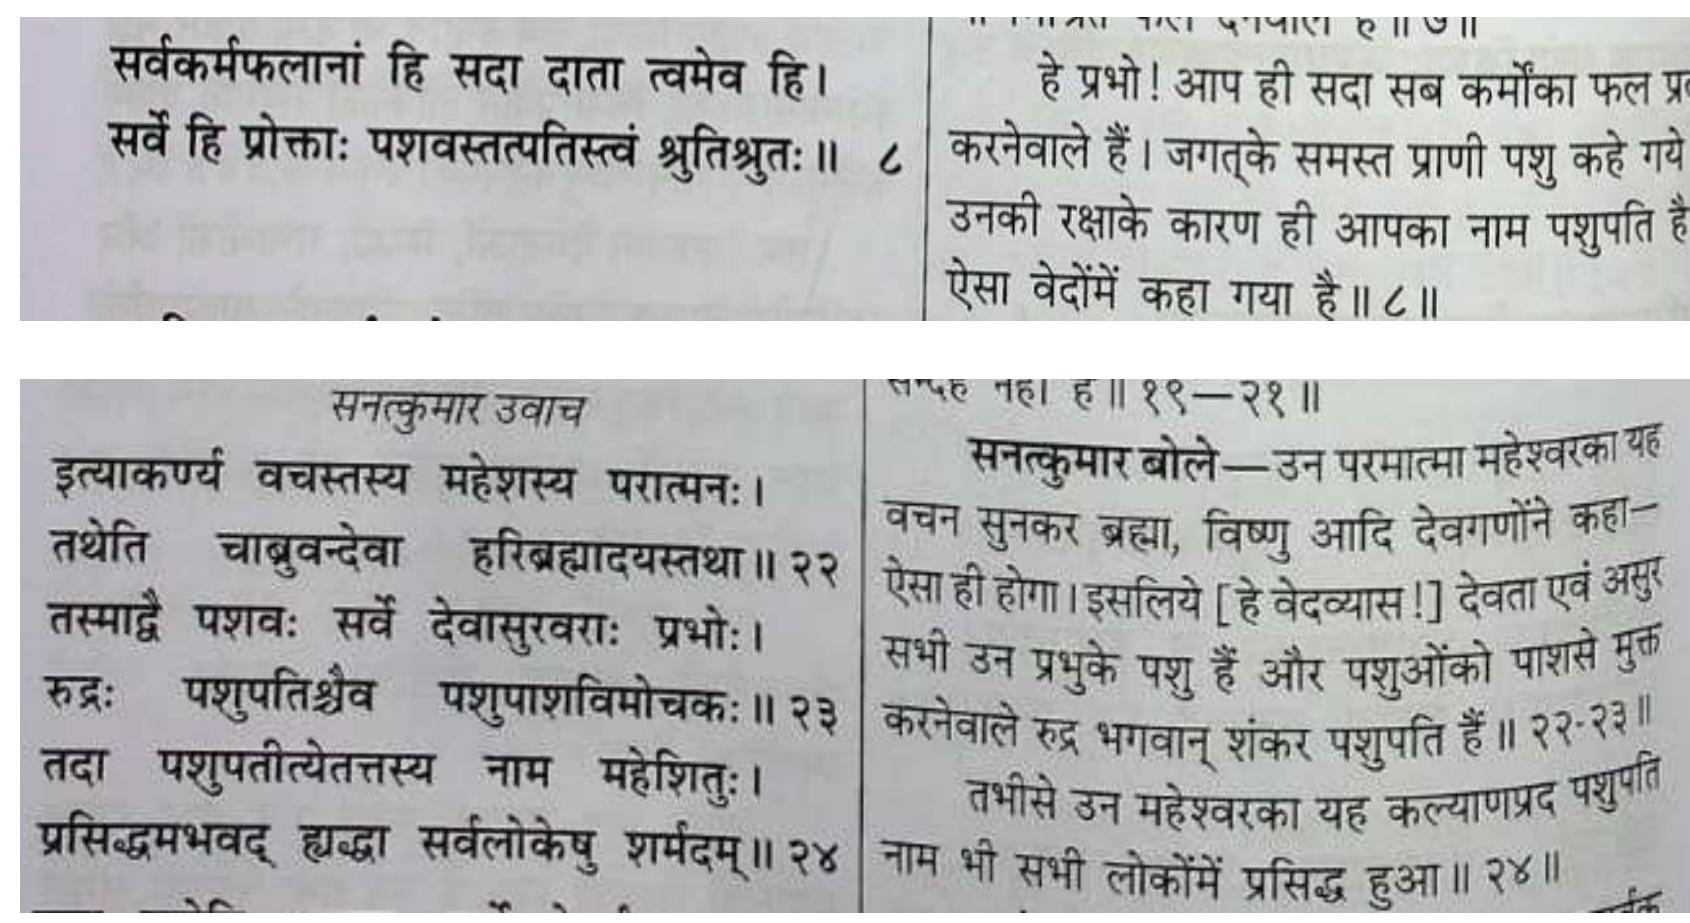 सर्वकर्मफलानां हि सदा दाता त्वमेव हि।
सर्वे हि प्रोक्ताः पशवस्तत्पतिस्त्वं श्रुतिश्रुतः॥ ८
है॥७॥
हे प्रभो! आप ही सदा सब कर्मोंका फल
करनेवाले हैं। जगत्‌के समस्त प्राणी पशु कहे गये
उनकी रक्षाके कारण ही आपका नाम पशुपति है
ऐसा वेदोंमें कहा गया है॥८॥
सनत्कुमार उवाच
इत्याकर्ण्य वचस्तस्य महेशस्य परात्मनः।
तथेति चाब्रुवन्देवा हरिब्रह्मादयस्तथा॥ २२
तस्माद्वै पशवः सर्वे देवासुरवराः प्रभोः।
रुद्रः पशुपतिश्चैव पशुपाशविमोचकः॥ २३
तदा पशुपतीत्येतत्तस्य नाम महेशितुः।
प्रसिद्धमभवद् ह्यद्धा सर्वलोकेषु शर्मदम्॥ २४
सन्देह नहीं है॥१९—२१॥
सनत्कुमार बोले—उन परमात्मा महेश्वरका यह
वचन सुनकर ब्रह्मा, विष्णु आदि देवगणोंने कहा—
ऐसा ही होगा। इसलिये [हे वेदव्यास!] देवता एवं असुर
सभी उन प्रभुके पशु हैं और पशुओंको पाशसे मुक्त
करनेवाले रुद्र भगवान् शंकर पशुपति हैं॥ २२-२३॥
तभीसे उन महेश्वरका यह कल्याणप्रद पशुपति
नाम भी सभी लोकोंमें प्रसिद्ध हुआ॥ २४॥